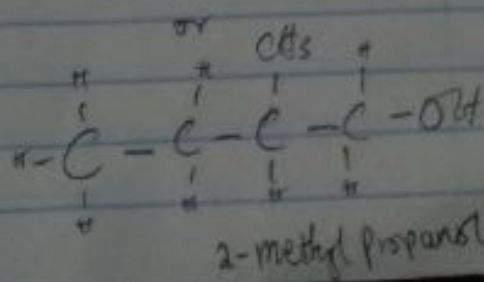 or
H H CH3 H
H - C - C - C - C - OH
H H H H
2-methyl propanol